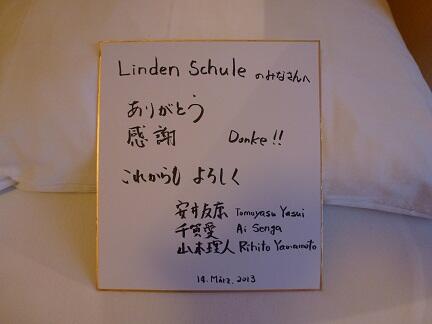 Linden Schule のみなさんへ
ありがとう
感謝 Danke!!
これからも よろしく
安井友康 Tomoyasu Yasui
千賀愛 Ai Senga
山本理人 Rihito Yamamoto
14. März. 2013